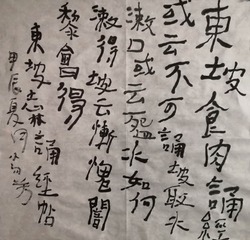 東坡食肉誦經
或云不可誦坡取水
漱口或云盌水如何
漱得坡云慚愧闍
黎會得
東坡志林誦經帖
甲辰夏月